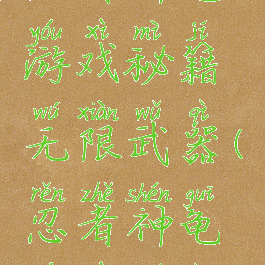 yóu xì mì jí
游戏秘籍
wú xiàn wǔ qì
无限武器(
rěn zhě shén guī
忍者神龟